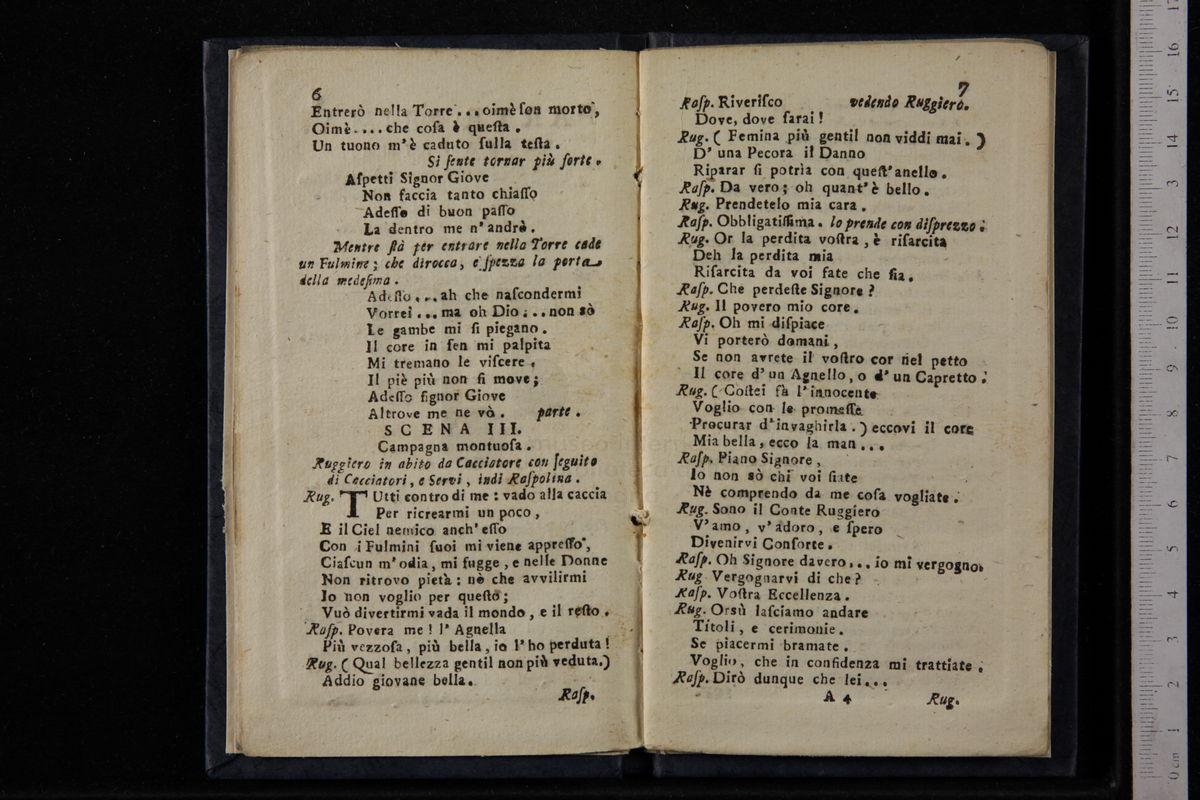 6
Entrerò nella Torre ... oimè ſon morto,
Oimè .... che coſa è queſta .
Un tuono m'è caduto ſulla teſta .
Si ſente tornar più forte .
Aſpetti Signor Giove
Non faccia tanto chiaſſo
Adeſſo di buon paſſo
La dentro me n'andrè .
Mentre ſtà per entrare nella Torre cade
un Fulmine ; che dirocca , e ſpezza la porta
della medeſima .
Adeſſo ... ah che naſcondermi
Vorrei ... ma oh Dio ... non sò
Le gambe mi ſi piegano .
Il core in ſen mi palpita
Mi tremano le viſcere ,
Il piè più non ſi move ;
Adeſſo ſignor Giove
Altrove me ne vò . parte .
SCENA III.
Campagna montuoſa .
Ruggiero in abito da Cacciatore con ſeguito
di Cacciatori , e Servi , indi Raſpolina .
Rug. TUtti contro di me : vado alla caccia
Per ricrearmi un poco ,
E il Ciel nemico anch' eſſo
Con i Fulmini ſuoi mi viene appreſſo ,
Ciaſcun m'odia , mi fugge , e nelle Donne
Non ritrovo pietà : nè che avvilirmi
Io non voglio per queſto ;
Vuò divertirmi vada il mondo , e il reſto .
Raſp. Povera me ! l' Agnella
Più vezzoſa , più bella , io l'ho perduta !
Rug. ( Qual bellezza gentil non più veduta.)
Addio giovane bella .
Raſp.
7
Raſp. Riveriſco vedendo Ruggiero.
Dove, dove ſarai !
Rug. ( Femina più gentil non viddi mai . )
D' una Pecora il Danno
Riparar ſi potrìa con queſt'anello .
Raſp. Da vero ; oh quant'è bello .
Rug. Prendetelo mia cara .
Raſp. Obbligatiſſima . lo prende con diſprezzo .
Rug. Or la perdita voſtra , è riſarcita
Deh la perdita mia
Riſarcita da voi fate che ſia .
Raſp. Che perdeſte Signore ?
Rug. Il povero mio core .
Raſp. Oh mi diſpiace
Vi porterò domani ,
Se non avrete il voſtro cor nel petto
Il core d' un Agnello , o d' un Capretto .
Rug. ( Coſtei fà l'innocente
Voglio con le promeſſe
Procurar d'invaghirla . ) eccovi il core
Mia bella , ecco la man ...
Raſp. Piano Signore ,
Io non sò chi voi ſiate
Nè comprendo da me coſa vogliate .
Rug. Sono il Conte Ruggiero
V'amo , v'adoro , e ſpero
Divenirvi Conſorte .
Raſp. Oh Signore davero ... io mi vergogno.
Rug Vergognarvi di che ?
Raſp. Voſtra Eccellenza .
Rug. Orsù laſciamo andare
Titoli , e cerimonie .
Se piacermi bramate .
Voglio , che in confidenza mi trattiate .
Raſp. Dirò dunque che lei ...
A 4 Rug.